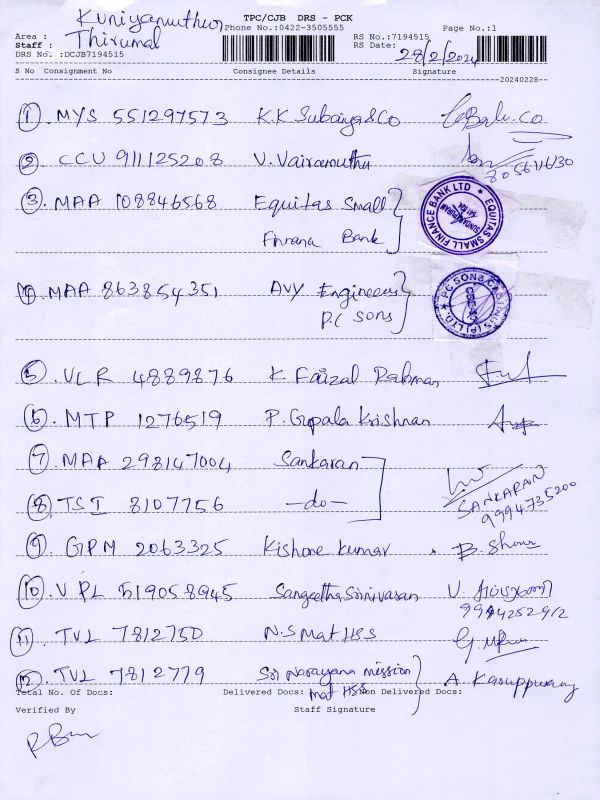 TPC/CJB DRS - PCK
Kuniyamuthur
Phone No.:0422-3505555
RS No.:7194515
Page No.:1
Area :
Staff : Thirumal
RS Date: 28/2/2024
DRS No. :DCJB7194515
S No Consignment No Consignee Details Signature
20240228
1. MYS 551297573 K.K Subaiya & Co
2. CCU 911125208 V. Vairamuthu
8056116130
3. MAA 108846568 Equitas Small
Finana Bank
EQUITAS SMALL FINANCE BANK LTD
4. MAA 863854351 Avy Engineers
P.C Sons
5. VLR 4889876 K Faizal Rahman
6. MTP 1276519 P. Gopala Krishnan
7. MAA 298147004 Sankaran
8. TSI 8107756 -do- SANKARAN
9994735200
9. GPM 2063325 Kishore Kumar
10. VPL 519058945 Sangeetha Srinivasan
9994252912
11. TVL 7812750 N.S Mat HSS
12. TVL 7812779 Sri Narayana mission A. Karuppusamy
Mat HSS
Total No. Of Docs: Delivered Docs: Non Delivered Docs:
Verified By Staff Signature